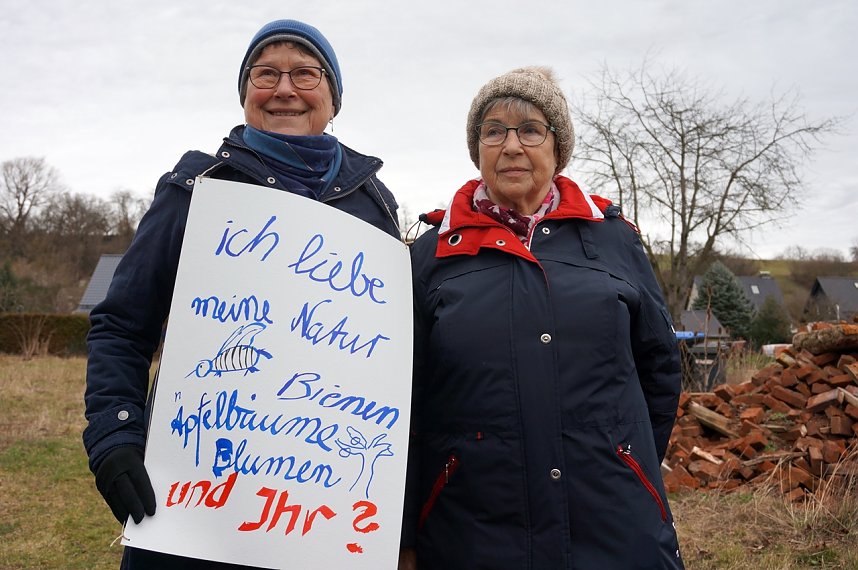 ich liebe
meine Natur
Bienen
Apfelbäume
Blumen
und Ihr?